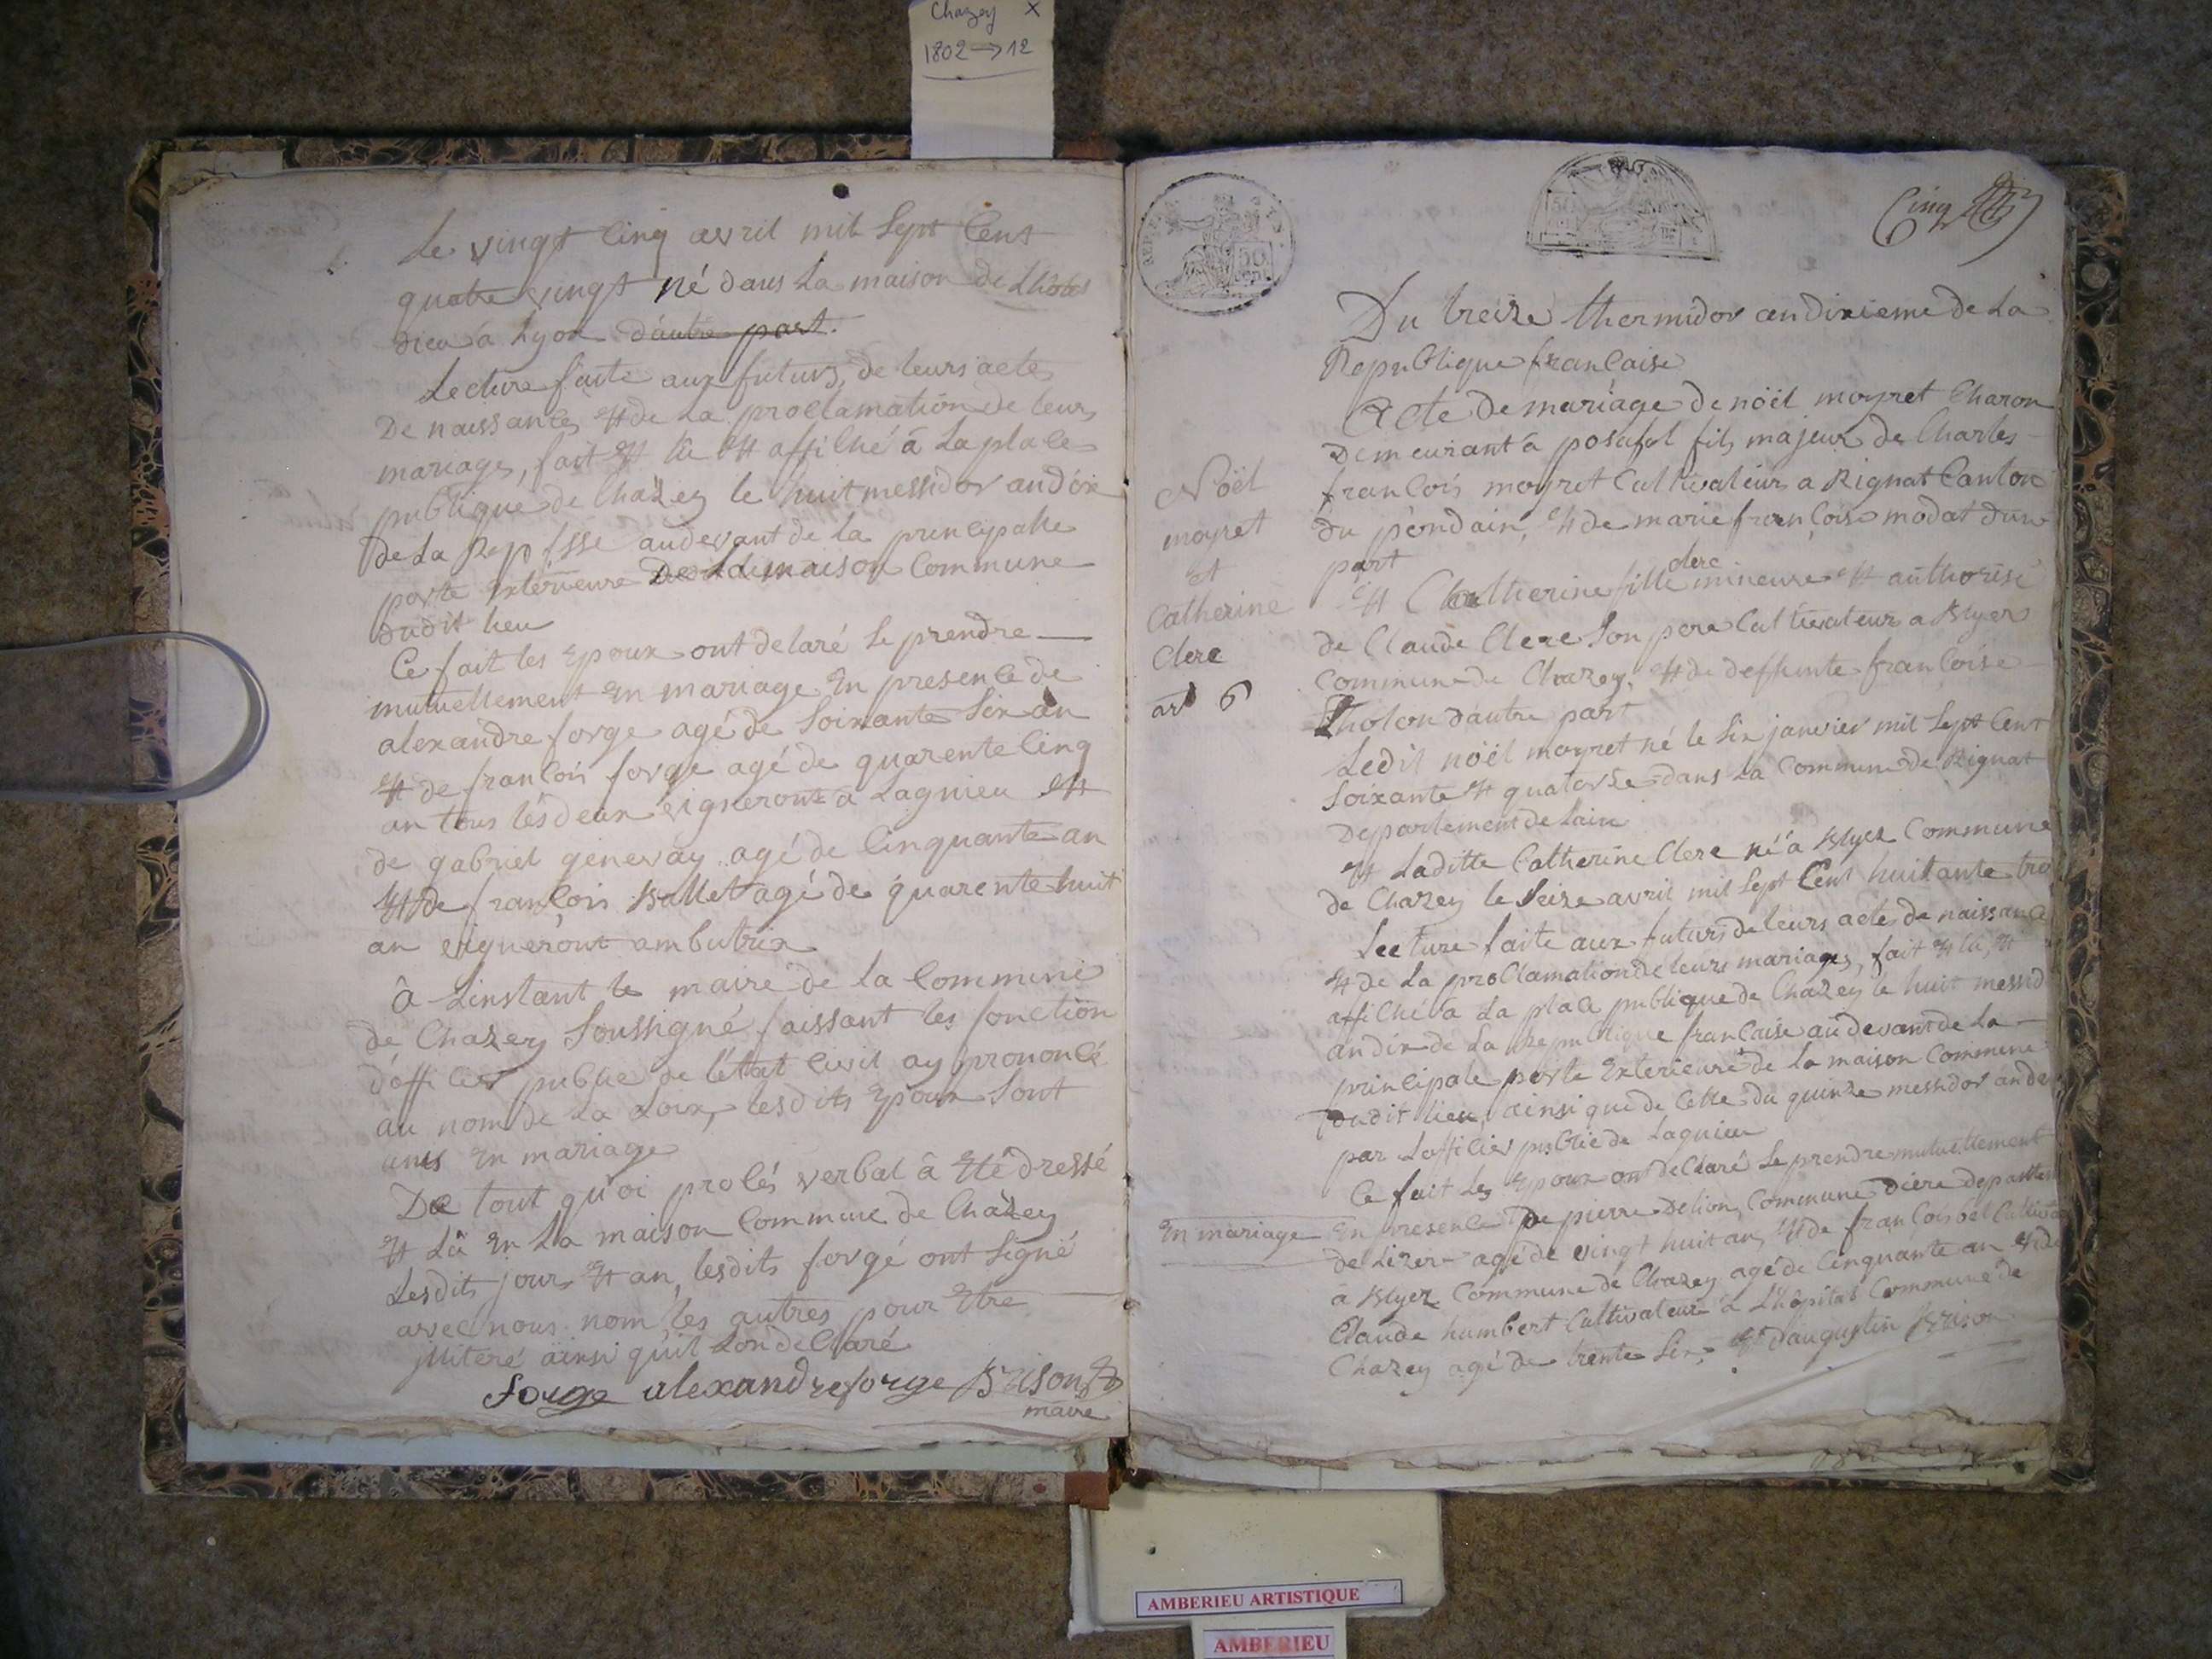 Chazey X
1802 → 12
Le vingt Cinq avril mil Sept Cent
quatre vingt né dans La maison de Lhôtel
dieu a Lyon d'autre part.
Lecture faite aux futurs, de leurs acte
De naissances et de La proclamation de leur
mariage, fait et lû et affiché à La place
publique de Chazey le huit messidor an dix
de La Rep fsse audevant de la principalle
porte Exterieure De La maison Commune
dudit lieu
Ce fait les Epoux ont delaré Se prendre
mutuellement En mariage En presence de
alexandre forge agé de Soixante Six an
et de francois forge agé de quarente Cinq
an tous les deux vigneront à Lagnieu et
de gabriel genevay agé de Cinquante an
et de francois Ballet agé de quarente huit
an vigneront ambutrix
à Linstant le maire de la Commune
de Chazey Soussigné faissant les fonction
d'officier public de l'éttat Civil ay prononcé
au nom de La Loix, lesdits Epoux Sont
unis En mariage
De tout quoi procés verbal à Eté dressé
et Lû En La maison Commune de Chazey
Lesdit jour et an, lesdits forgé ont Signé
avec nous nom les autres pour Etre
jlliteré ainsi quil Lon declaré
forge alexandre forge Brison
maire
REP. FRA.
50 cent
Cinq
Du treize thermidor an dixieme de La
Republique francaise
Acte De mariage de nöel moyret Charon
Demeurant a posafol fils majeur de Charles
francois moyret Cultivateur a Rignat Canton
du pondain, et de marie francoise modat dune
part
Noël
moyret
et
Catherine
Clerc
art 6
et Catherine clerc fille mineure et authorisé
de Claude Clerc Son pere Cultivateur a Blyes
Commune de Chazey, et de deffunte francoise
Tholon d'autre part
Ledit nöel moyret né le Six janvier mil Sept Cent
Soixante et quatorze dans La Commune de Rignat
Departement de Lain
et Laditte Catherine Clerc né à Blyez Commune
de Chazey le Seize avril mil Sept Cent huitante
Lecture faite aux futurs de leurs acte de naissance
et de La proclamation de leurs mariages, fait et lû, et
affiché à La place publique de Chazey le huit messid
an dix de La Republique francaise audevant de La
principale porte Exterieure de La maison Commune
dudit lieu, ainsi que de Celle du quinze messidor an
par Lofficier public de Lagnieu
Ce fait Les Epoux ont declaré Se prendre mutuellement
En mariage En presence De pierre Delion, Commune
de Lizer agé de vingt huit an, et de francois bel
à Blyez Commune de Chazey agé de Cinquante an et de
Claude humbert Cultivateur a Lhopital Commune de
Chazey agé de trente Six, et d'augustin Brison
AMBERIEU ARTISTIQUE
AMBERIEU